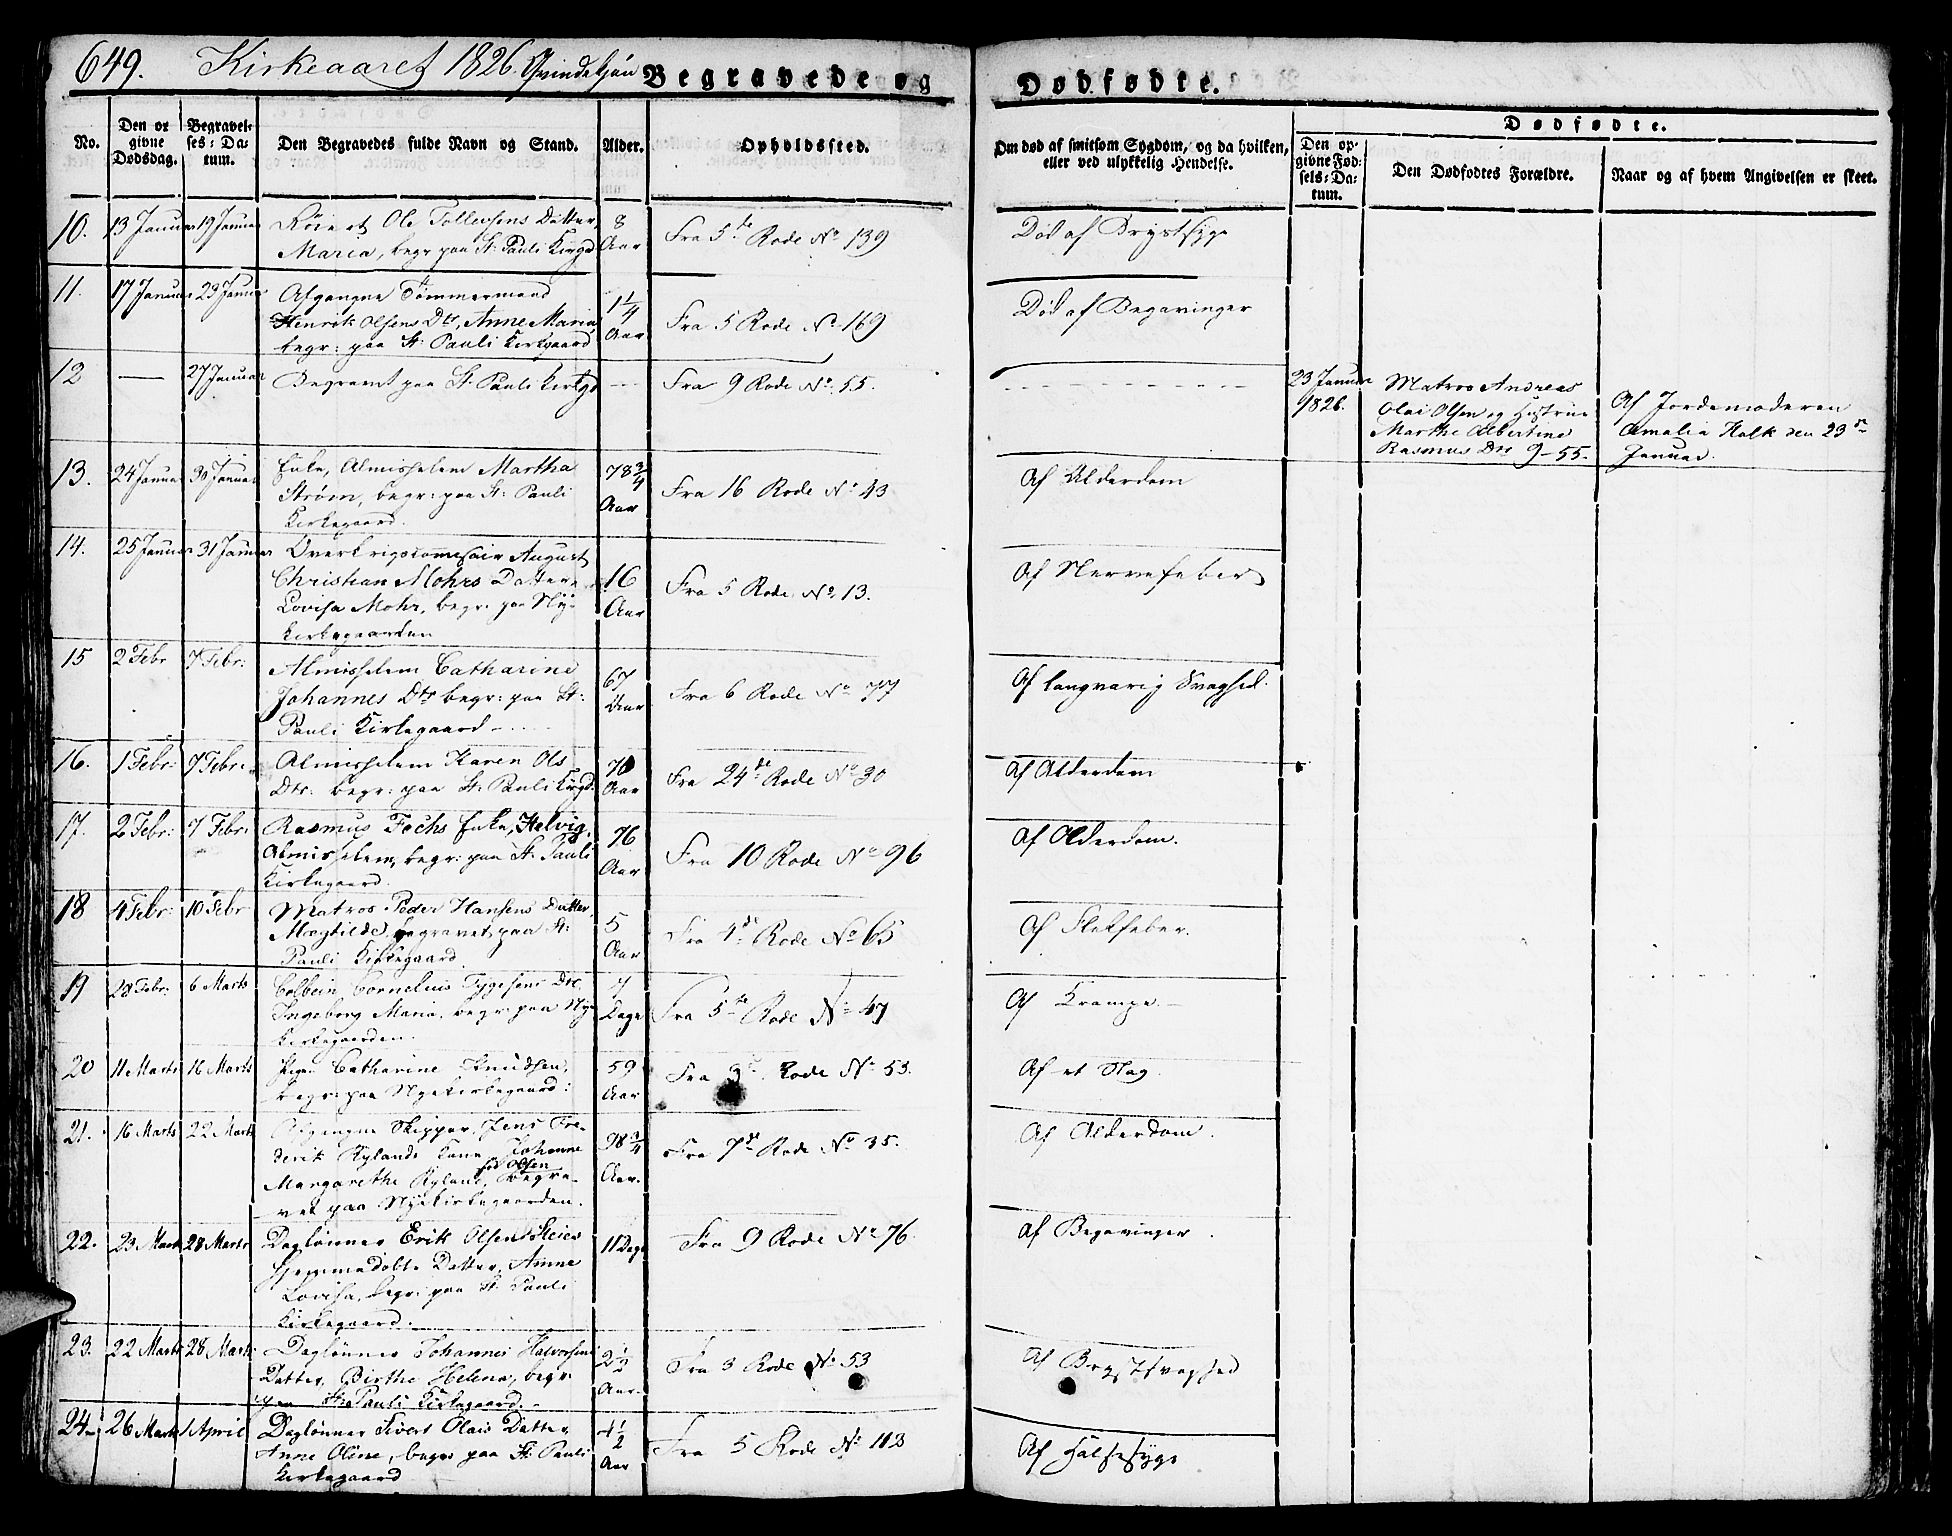 649. Kirkeaaret 1826. Qvindekjøn Begravede og Dødfødte.
No.
Den opgivne Dødsdag.
Begravelses-Datum.
Den Begravedes fulde Navn og Stand.
Alder.
Opholdssted.
Om død af smitsom Sygdom, og da hvilken, eller ved ulykkelig Hendelse.
Dødfødte.
Den opgivne Fødsels-Datum.
Den Dødfødtes Forældre.
Naar og af hvem Angivelsen er skeet.
10. 13 Januar 19 Januar Ole Tollevsens Datter 8
Maria, begr paa St. Pauli Kirgd Aar Fra 5te Rode No 139 Død af Brystsyge
11. 17 Januar 23 Januar Afgangne Tømmermand 1 1/4
Henrik Olsens Dtr, Anne Maria
begr: paa St. Pauli Kirkgaard Aar Fra 5 Rode No 169 Død af Begavinger
12 — 27 Januar Begravet paa St: Pauli Kirkgd --- Fra 9 Rode No 55. 23 Januar
1826.
Matros Andreas
Olai Olsen og Hustrue
Marthe Albertine
Rasmus Dtr 9-55.
Af Jordemoderen
Amalia Holk den 23de
Januar.
13. 24 Januar 30 Januar Enke, Almisselem Martha 78 3/4
Strøm, begr: paa St: Pauli Aar Fra 16 Rode No 43 Af Alderdom
Kirkegaard.
14. 25 Januar 31 Januar Overkrigscomissair August
Christian Mohrs Datter 16
Lovisa Mohr, begr: paa Nye Aar Fra 5 Rode No 13. Af Nervefeber
Kirkegaarden
15 2 Febr 7 Febr: Almisselem Catharine 67
Johannes Dtr begr: paa St: Aar Fra 6 Rode No 77 Af langvarig Svaghed.
Pauli Kirkegaard
16. 1 Febr: 7 Febr: Almisselem Karen Ols 70
Dtr: begr: paa St: Pauli Kirgd. Aar Fra 24de Rode No 30 Af Alderdom
17. 2 Febr: 7 Febr: Rasmus Fochs Enke, Helvig, 76
Almisselem, begr: paa St. Pauli Aar Fra 10 Rode No 96 Af Alderdom.
Kirkegaard.
18 4 Febr: 10 Febr Matros Peder Hansens Datter, 5
Magtilde begravet paa St: Aar Fra 4de Rode No 65 Af
Pauli Kirkegaard.
19 28 Febr: 6 Marts Cornelius Tygesens Dtr 7
Ingeborg Maria, begr: paa Nye Dage Fra 5te Rode No 47 Af Krampe.
Kirkegaarden.
20 11 Marts 16 Marts Pigen Catharine Knudsen, 59
begr: paa Nyekirkegaard: Aar Fra Rode No 53. Af et Slag.
21. 16 Marts 22 Marts Afgangne Skipper Jens Fre-
derik Rylands Kone Johanne 98 3/4 Fra 7de Rode No 35. Af Alderdom.
Margarethe Ryland, fød Olsen begra- Aar.
vet paa Nyekirkegaarden.
22. 23 Marts 28 Marts Daglønner Erik Olsens 11 Dage Fra 9 Rode No 76. Af Begavinger.
hjemmedøbte Datter, Anne
Lovisa, begr: paa St Pauli
Kirkegaard.
23. 22 Marts 28 Marts Daglønner Johannes Halvorsens 2 1/2
Datter, Birthe Helena, begr Aar. Fra 3 Rode No 53 Af Brystsvaghed
paa St: Pauli Kirkegaard.
24 26 Marts 1 April Daglønner Sivert Olais Datter
Anne Oline, begr: paa St Pauli Aar Fra 5 Rode No 113 Af Halsesyge
Kirkegaard